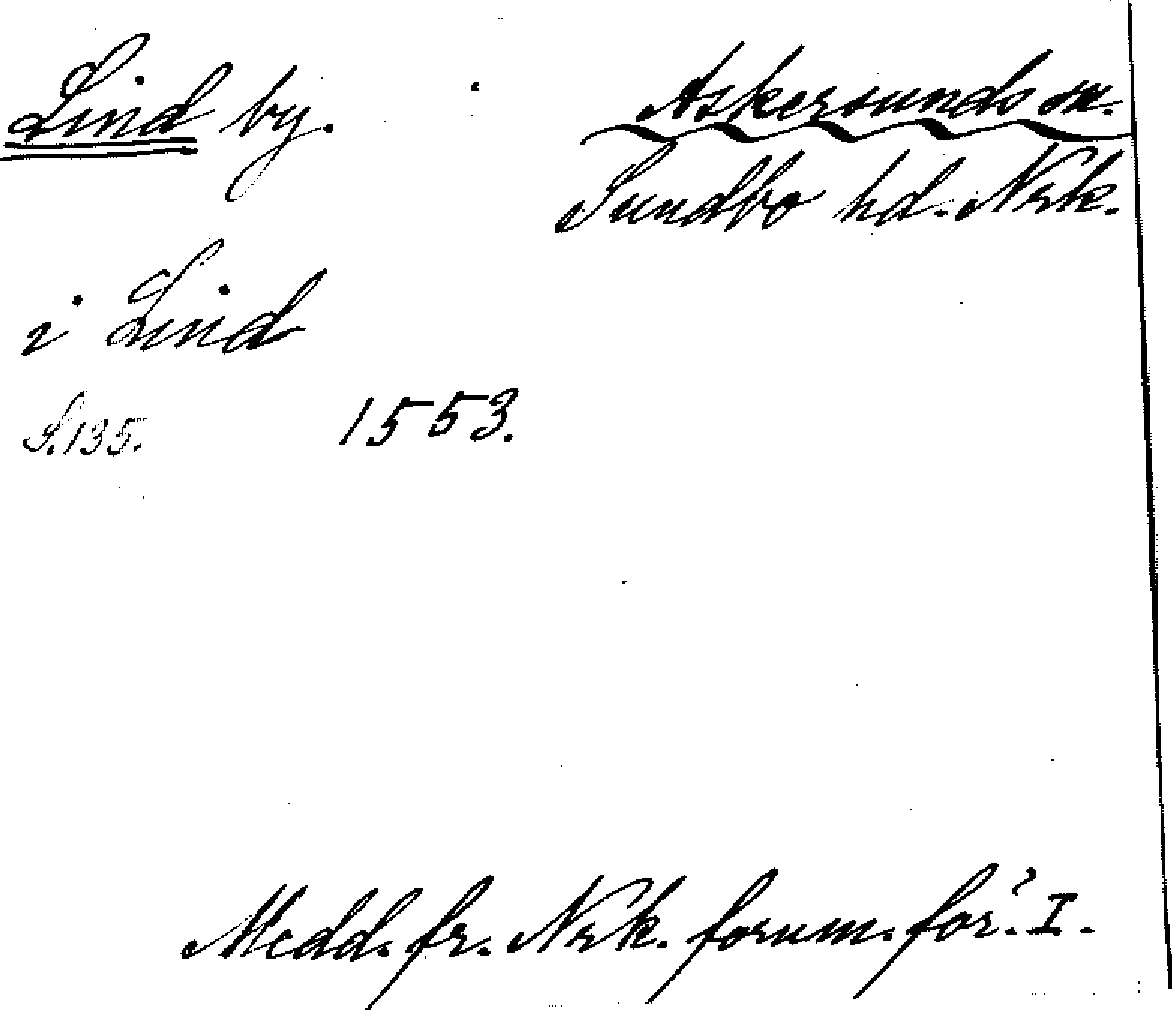 Lind by.
Askersunds sn.
Sundbo hd. Nrk.
i Lind
S. 135. 1553.
Medd. fr. Nrk. fornm. för. I.